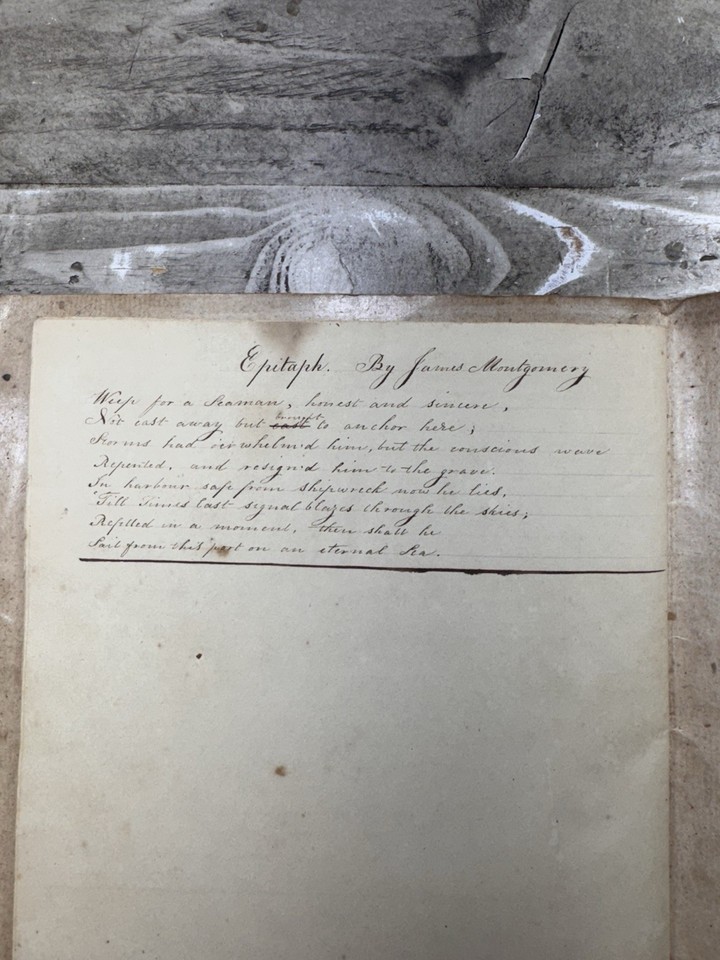 Epitaph. By James Montgomery
Weep for a Seaman, honest and sincere,
Not cast away but cast brought to anchor here;
Storms had o'erwhelm'd him, but the conscious wave
Repented, and resign'd him to the grave.
In harbour safe from shipwreck now he lies,
'Till Times last signal blazes through the skies;
Refitted in a moment, then shall he
Sail from this port on an eternal Sea.